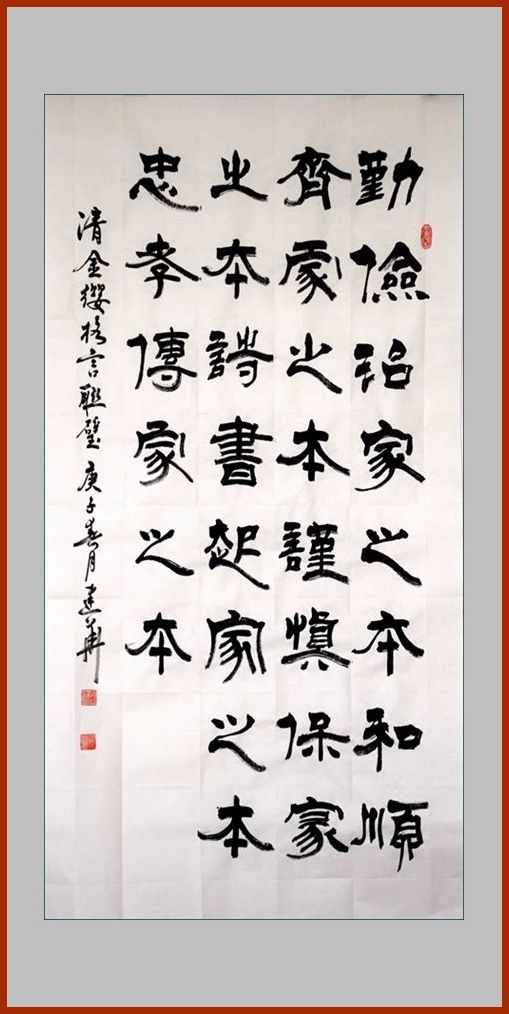 勤儉治家之本和順
齊家之本謹慎保家
之本詩書起家之本
忠孝傳家之本
清金纓格言聯璧 庚子春月建華